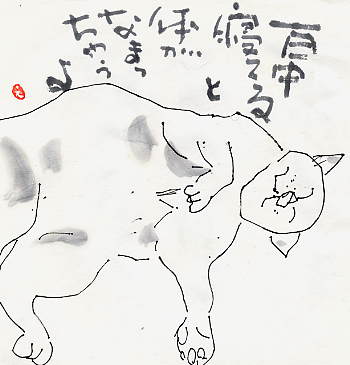 一日中
寝てる
と
体が
なまっ
ちゃう
よ